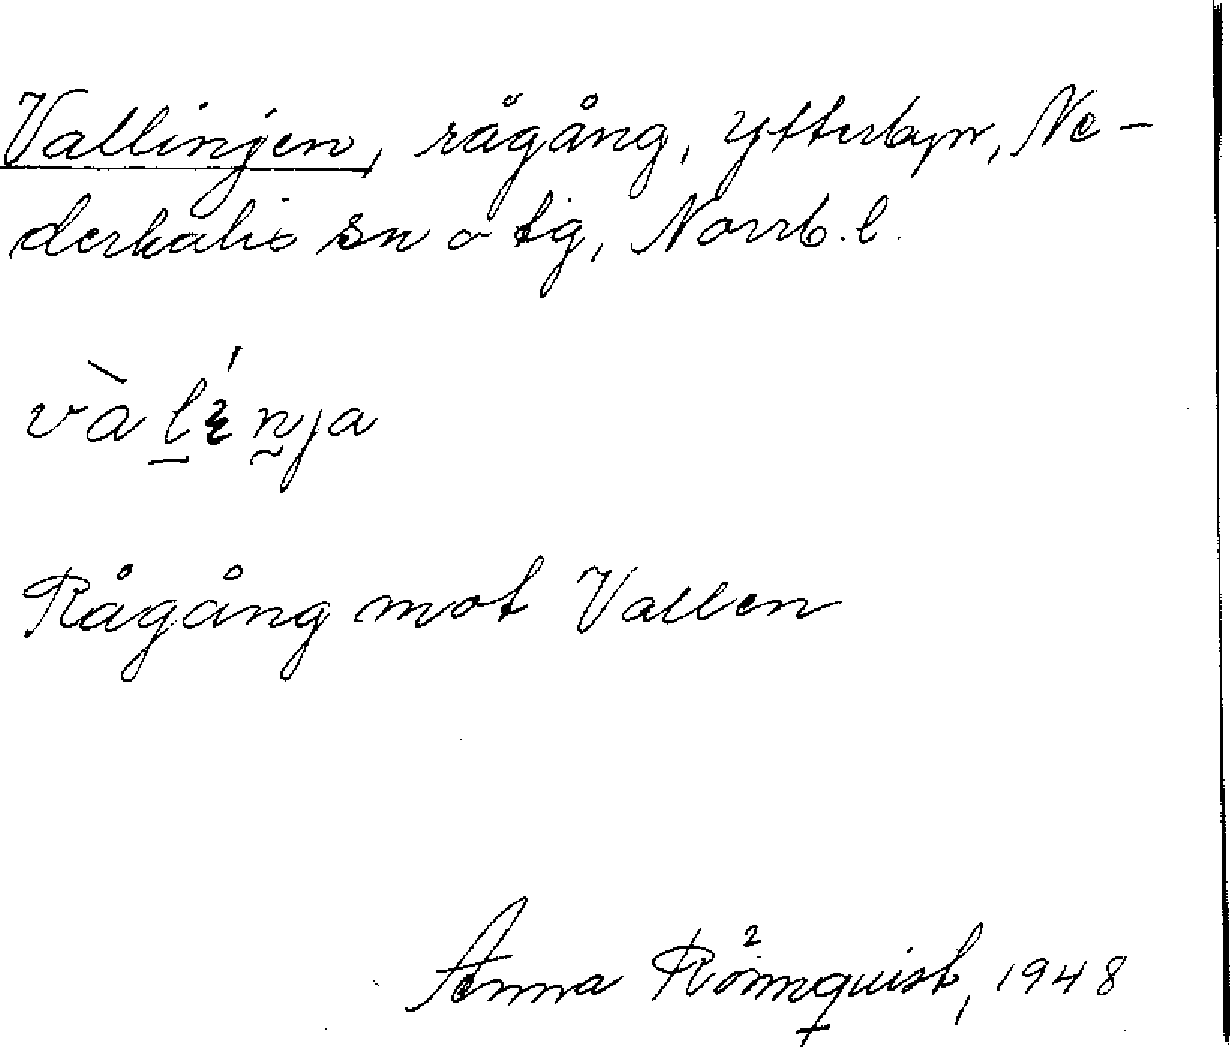 Vallinjen, rågång, Ytterbyn, Ne-
derkalix sn o tg, Norrb. l.
và lí nja
Rågång mot Vallen
Anna Rönnquist, 1948